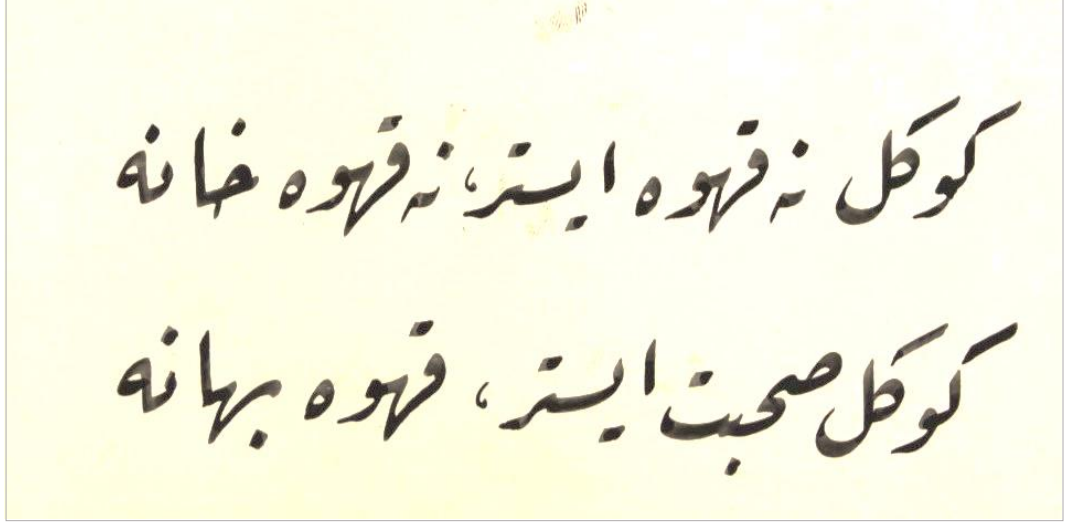 كوكل نه قهوه ايستر، نه قهوه خانه
كوكل صحبت ايستر، قهوه بهانه